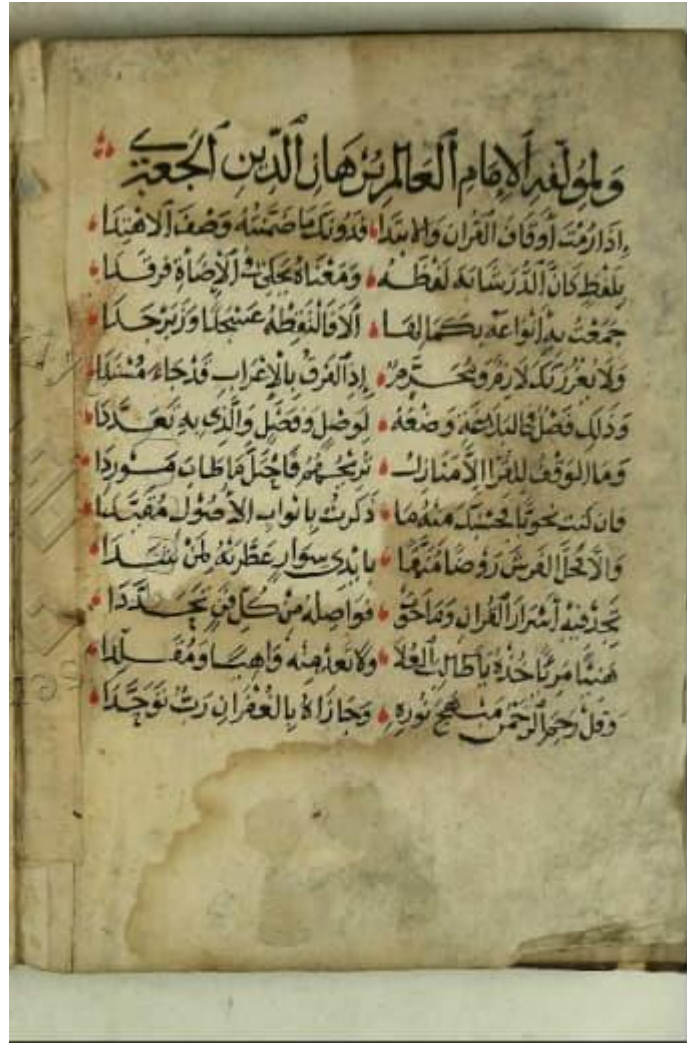 ولمؤلفه الإمام العالم برهان الدين الجعبري
إذا رمت أوقاف القران والابتدا فدونك ما ضمنته وصف الاهتدا
بلفظ كأن الدر شابه لفظه ومعناه يحكي في الإضاة فرقدا
جمعت به أنواعه بكمالها ألا فالتقطه عسجدا وزبرجدا
ولا يغررنك لازم ومحرم إذ الفرق بالإعراب قد جاء مسندا
وذلك فصل في البلاغة وضعه لوصل وفصل والذي به تعددا
وما الوقف للقرا إلا منازل تريحهم فاحتل ما طاب موردا
فان كنت نحويا فحسبك منه ما ذكرت بابواب الأصول مقيدا
والا فحل الفرش روضا منمما بايدي سوار عطرته لمن
تجد فيه أسرار القران وما حوى فواصله من كل فن تجددا
هنيئا مريا خذه يا طالب العلا ولا تعد منه واهبا ومقلدا
وقل رحم الرحمن منهج نوره وجازاه بالغفران رب توحدا